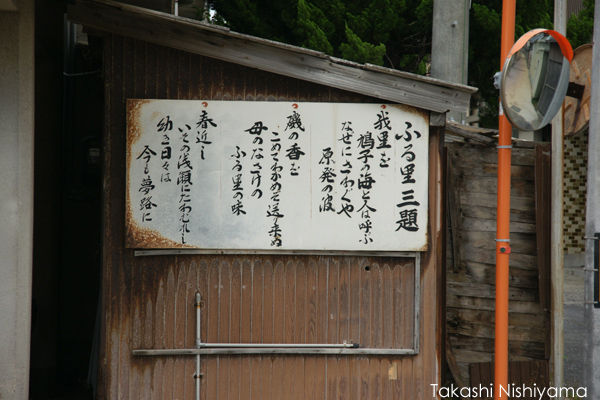 ふる里三題
我里を
鳩子の海と人は呼ぶ
なぜにさわぐや
原発の波
磯の香を
こめてわかめを送り来ぬ
母のなさけの
ふる里の味
春近し
いその浅瀬にたわむれし
幼き日々は
今も夢路に
Takashi Nishiyama